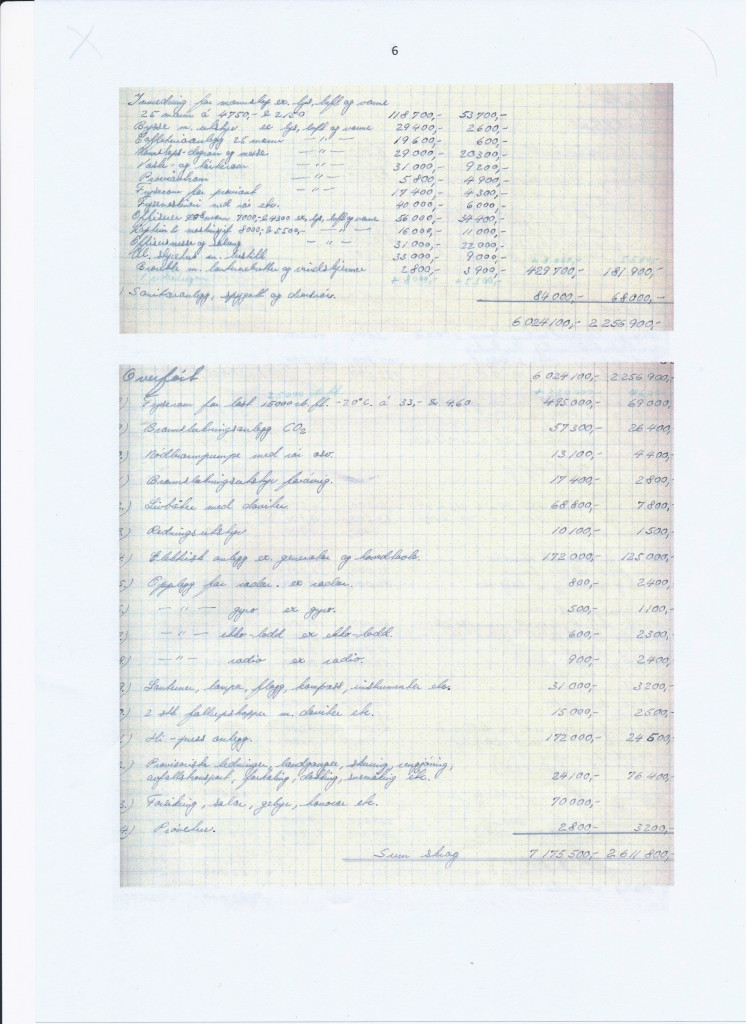 6
Innredning for mannskap ex. lys, luft og varme
25 mann á 4750,- & 2150 118 700,- 53 700,-
Bysse m. utstyr ex lys, luft og varme 29 400,- 2 600,-
Cafeteriaanlegg 25 mann — " — 19 600,- 600,-
Mannskaps-dagrom og messe — " — 29 000,- 20 300,-
Vaske- og tørkerom — " — 31 000,- 9 200,-
Proviantrom — " — 5 800,- 4 900,-
Fryserom for proviant — " — 17 400,- 4 300,-
Frysemaskineri med rør etc. 40 000,- 6 000,-
Offiserer mann 7000,- & 4300 ex. lys, luft og varme 56 000,- 34 400,-
8000,- & 5500,- — " — 16 000,- 11 000,-
Offisersmesse og salong — " — 31 000,- 22 000,-
Al. styrehus m. bestikk 33 000,- 9 000,-
m. lanternebrett og vindskjermer 2 800,- 3 900,- 429 700,- 181 900,-
Sanitæranlegg, spygatt og dekksrør. 84 000,- 68 000,-
6 024 100,- 2 256 900,-
Overført 6 024 100,- 2 256 900,-
Fryserom for last 15000 cb. ft. -20°C. á 33,- & 4.60 495 000,- 69 000,-
Brannslukningsanlegg CO2 57 300,- 26 400,-
Nødbrannpumpe med rør osv. 13 100,- 4 400,-
Brannslukningsutstyr forøvrig. 17 400,- 2 800,-
Livbåter med daviter. 68 800,- 7 800,-
Redningsutstyr 10 100,- 1 500,-
Elektrisk anlegg ex. generator og 172 000,- 125 000,-
Opplegg for radar. ex radar. 800,- 2400,-
— " — gyro ex gyro. 500,- 1 100,-
— " — ekko-lodd ex ekko-lodd. 600,- 2300,-
— " — radio ex radio. 900,- 2400,-
Lanterner, lamper, flagg, kompass, instrumenter etc. 31 000,- 3 200,-
2 stk fallepskapper m. daviter etc. 15 000,- 2 500,-
Hi-press anlegg. 172 000,- 24 500,-
Provisoriske ledninger, landganger, skuring, rengjøring,
avfallstransport, forhaling, dokking, etc. 24 100,- 76 400,-
Forsikring, salær, gebyr, honorar etc. 70 000,-
Prøvetur. 2800- 3200,-
Sum skrog 7 175 500,- 2 611 800,-